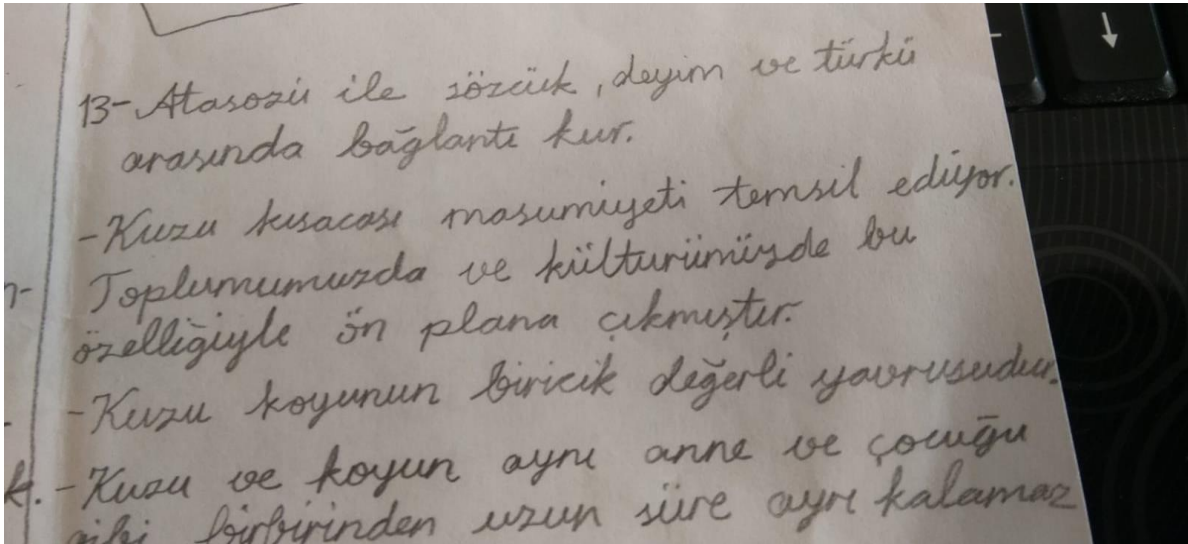 13-Atasozü ile sözcük, deyim ve türkü
arasında bağlantı kur.
-Kuzu kısacası masumiyeti temsil ediyor.
Toplumumuzda ve kültürümüzde bu
özelliğiyle ön plana çıkmıştır.
-Kuzu koyunun biricik değerli yavrusudur.
-Kuzu ve koyun aynı anne ve çocuğu
gibi birbirinden uzun süre ayrı kalamaz